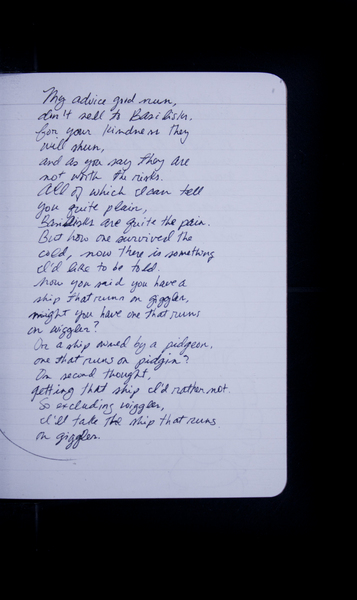 My advice good nun,
don't sell to Basilisks,
for your kindness they
will shun,
and as you say they are
not worth the risks.
All of which I can tell
you quite plain,
Basilisks are quite the pain.
But how one survived the
cold, now there is something
I'd like to be told.
Now you said you have a
ship that runs on giggler,
might you have one that runs
on wiggler?
Or a ship owned by a pidgeon,
one that runs on pidgin?
On second thought,
getting that ship I'd rather not.
So excluding wiggler,
I'll take the ship that runs
on giggler.